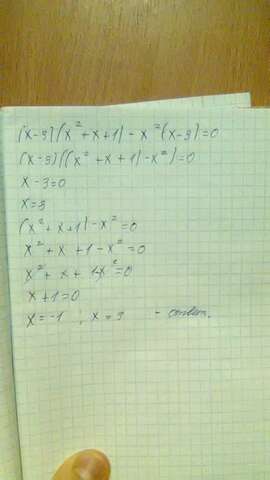 (x-3)(x²+x+1)-x²(x-3)=0
(x-3)((x²+x+1)-x²)=0
x-3=0
x=3
(x²+x+1)-x²=0
x²+x+1-x²=0
x²+x+1-x²=0
x+1=0
x=-1 ; x=3 - ответ.